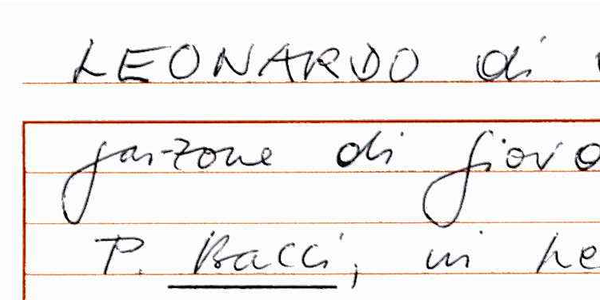 LEONARDO di
garzone di giova
P. Bacci, in